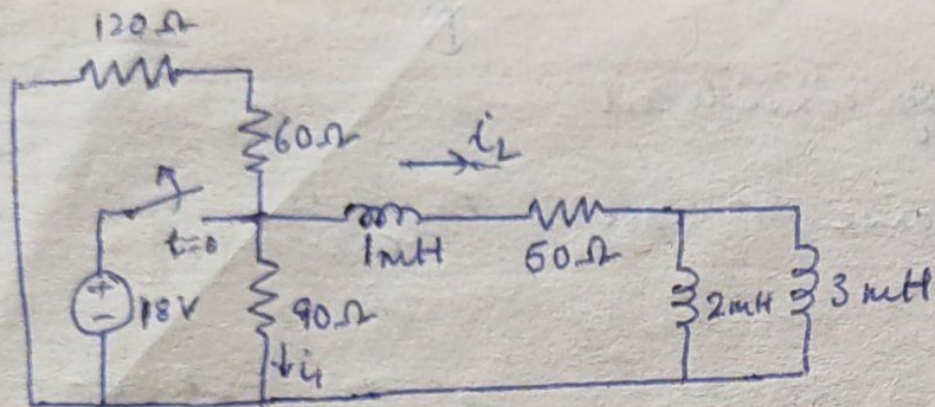 120Ω
60Ω
i₂
t=0
1mH
50Ω
18V
90Ω
2mH
3mH
↓i₁